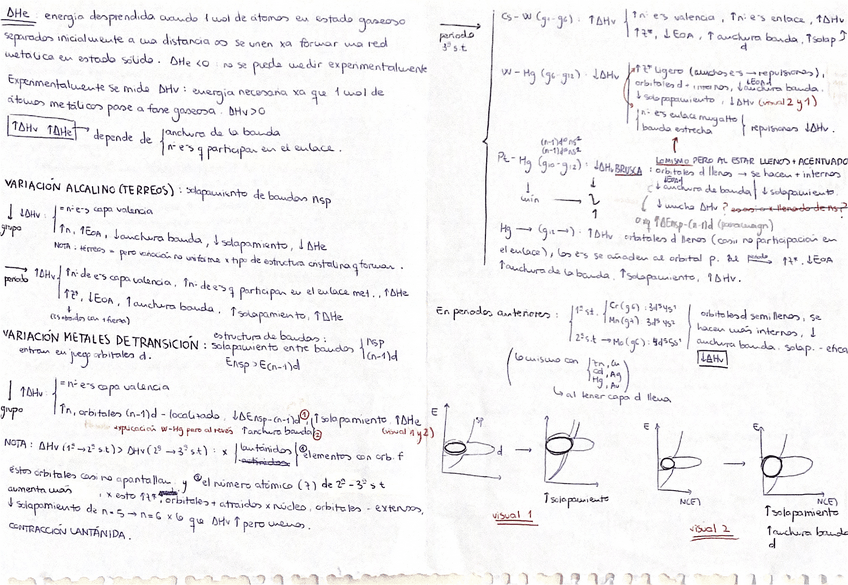 ΔHe energía desprendida cuando 1 mol de átomos en estado gaseoso
separados inicialmente a una distancia ∞ se unen xa formar una red
metálica en estado sólido. ΔHe <0 no se puede medir experimentalmente
Experimentalmente se mide ΔHv: energía necesaria xa que 1 mol de
átomos metálicos pase a fase gaseosa. ΔHv>0
↑ΔHv ↑ΔHe → depende de
anchura de la banda
nº e-s q participan en el enlace.
VARIACIÓN ALCALINO (TÉRREOS): solapamiento de bandas nsp
↓ grupo ↓ΔHv:
= nº e-s capa valencia
↑n, ↑EOA, ↓anchura banda, ↓solapamiento, ↓ΔHe
NOTA: térreos = pero variación no uniforme x tipo de estructura cristalina q forman.
→ periodo ↑ΔHv
↑nº de e-s capa valencia, ↑nº de e-s q participan en el enlace met., ↑ΔHe
↑Z*, ↓EOA, ↑anchura banda, ↑solapamiento, ↑ΔHe
VARIACIÓN METALES DE TRANSICIÓN: estructura de bandas:
solapamiento entre bandas
nsp
(n-1)d
entran en juego orbitales d.
Ensp > E(n-1)d
↓ grupo ↑ΔHv:
= nº e-s capa valencia
↑n, orbitales (n-1)d - localizado, ↓ΔEnsp-(n-1)d ①, ↑solapamiento, ↑ΔHe
explicación W-Hg pero al revés ↑anchura banda ② (visual 1 y 2)
NOTA: ΔHv (1º→2º s.t) > ΔHv (2º→3º s.t) x lantánidos elementos con orb. f
estos orbitales casi no apantallan y el número atómico (Z) de 2º-3º s.t
aumenta más, x esto ↑Z* orbitales + atraídos x núcleo, orbitales - extensos,
↓solapamiento de n=5 → n=6 x lo que ΔHv ↑ pero menos.
CONTRACCIÓN LANTÁNIDA.
→ periodo 3º s.t
Cs-W (g1-g6): ↑ΔHv
↑nº e-s valencia, ↑nº e-s enlace, ↑ΔHv
↑Z*, ↓EOA, ↑anchura banda, ↑solap
d
W-Hg (g6-g12): ↓ΔHv
↑Z* ligero (muchos e-s → repulsiones),
orbitales d + internos, ↓anchura banda.
↓solapamiento, ↓ΔHv (visual 2 y 1)
nº e-s enlace muy alto
banda estrecha
repulsiones ↓ΔHv.
Pt-Hg (g10-g12): ↓ΔHv BRUSCA
LO MISMO PERO AL ESTAR LLENOS + ACENTUADO
orbitales d llenos → se hacen + internos
↓anchura de banda ↓solapamiento.
↓ mucho ΔHv?
min
Hg → (g12→): ↑ΔHv orbitales d llenos (casi no participación en
el enlace), los e-s se añaden al orbital p. Al periodo → ↑Z*, ↓EOA
↑anchura de la banda, ↑solapamiento, ↑ΔHv.
En periodos anteriores:
1º s.t.
Cr (g6): 3d⁵4s¹
Mn (g7): 3d⁵4s²
2º s.t → Mo (g6): 4d⁵5s¹
orbitales d semillenos, se
hacen más internos, ↓
anchura banda. solap. - eficaz
↓ΔHv
(Lo mismo con
Zn, Cu
Cd, Ag
Hg, Au
↳ al tener capa d llena
E
sp
d
↑solapamiento
visual 1
E
N(E)
E
N(E)
↑solapamiento
↑anchura banda
d
visual 2